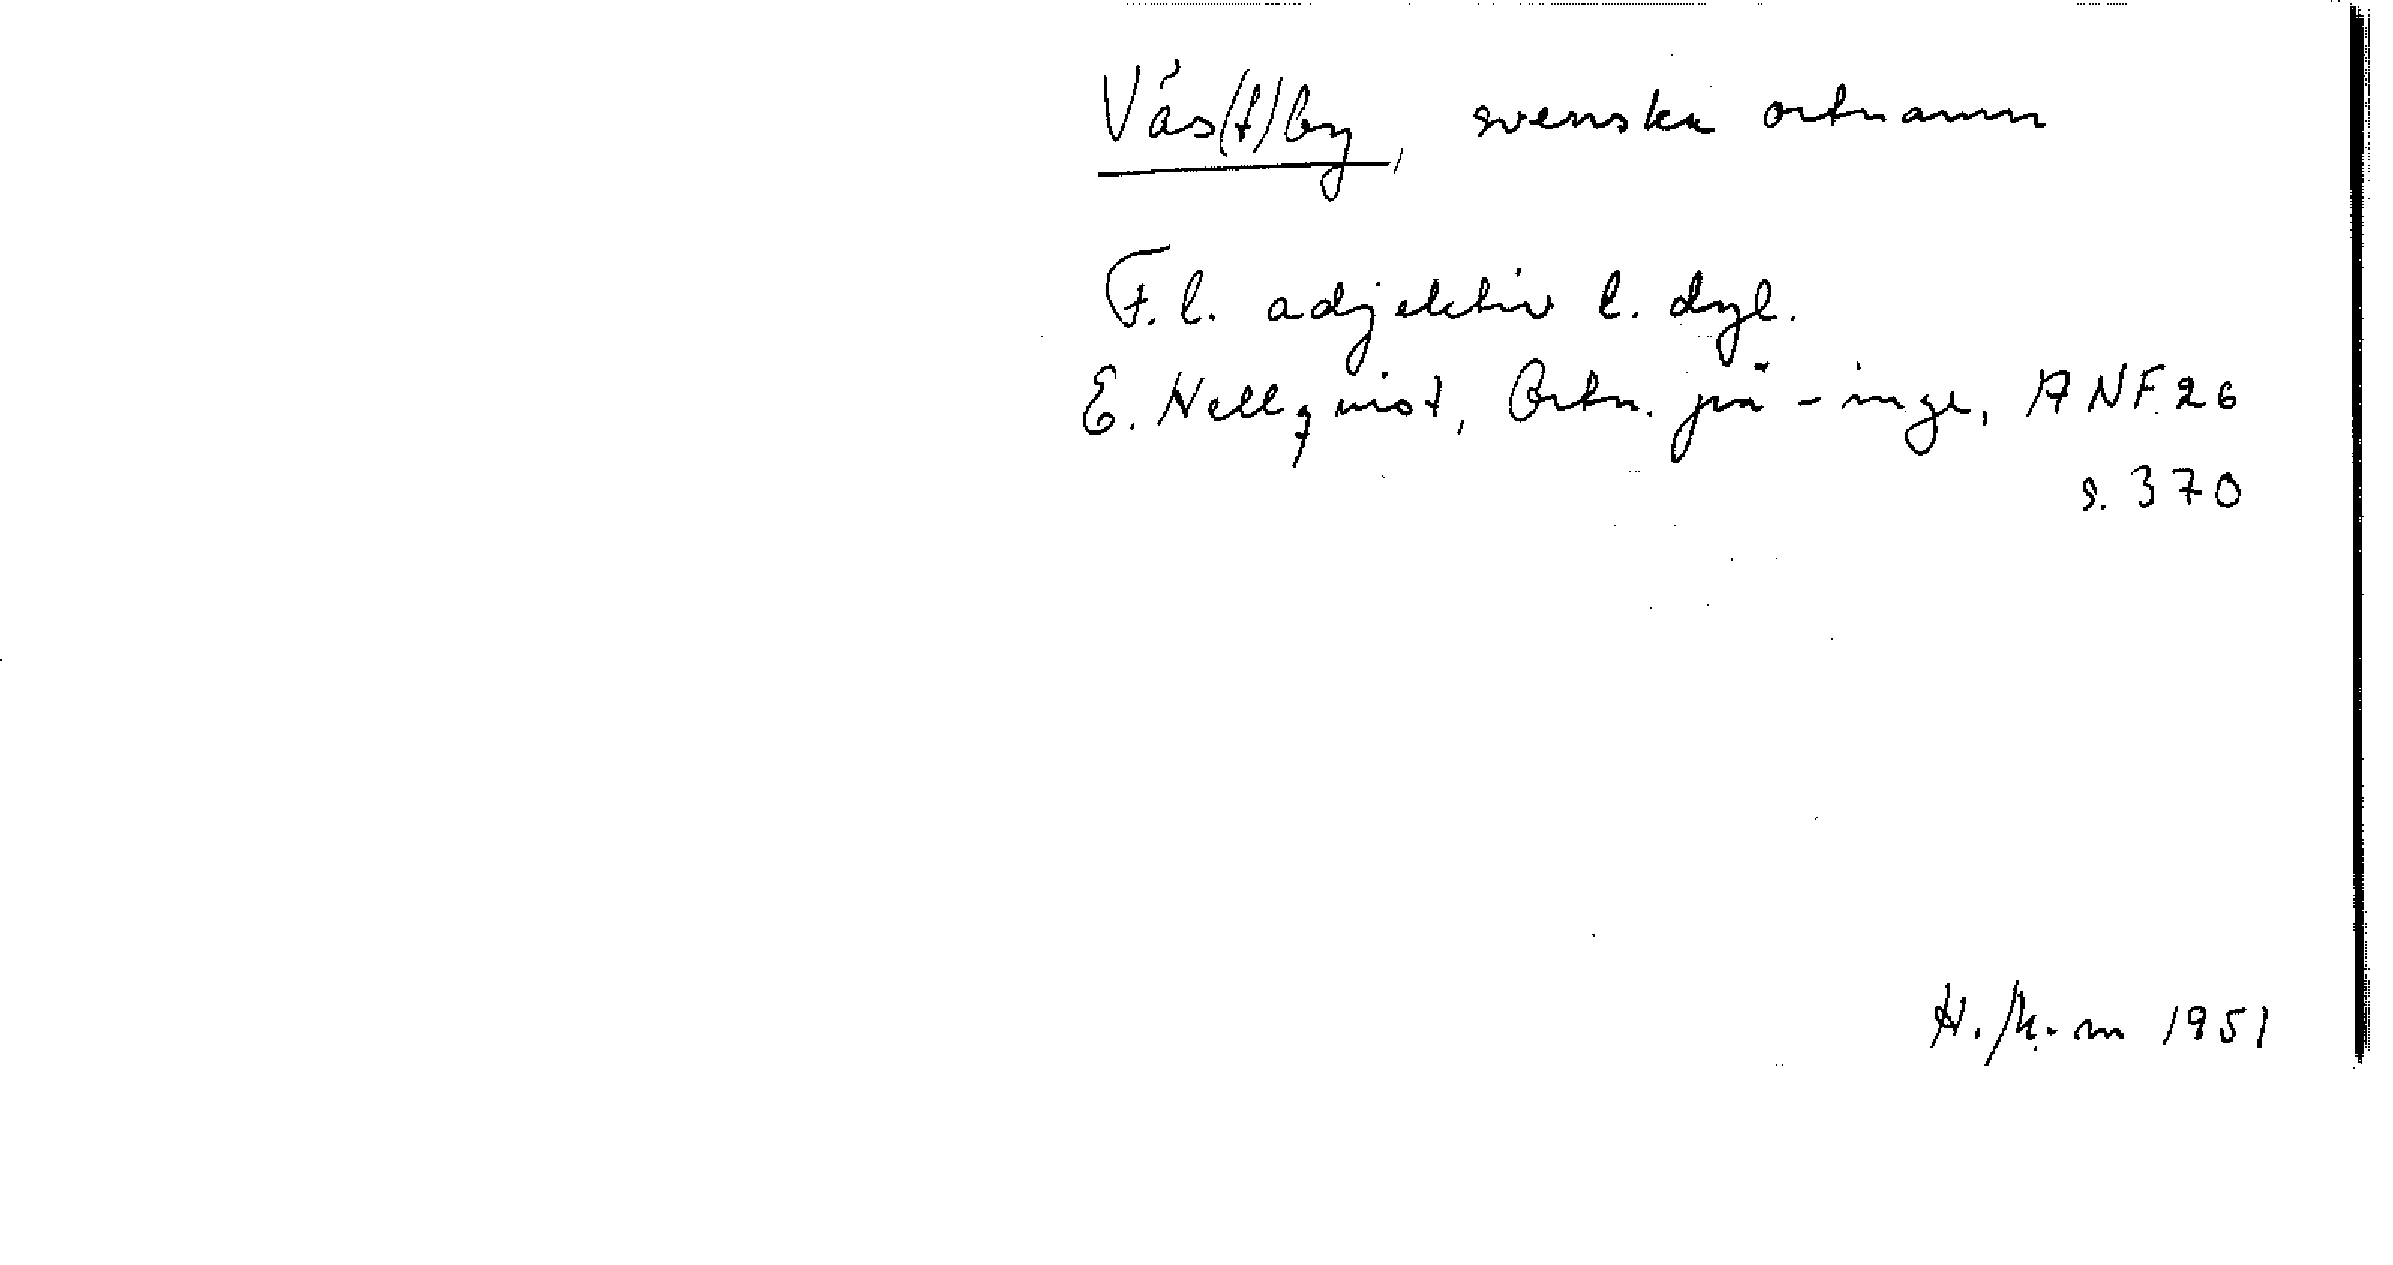 Väs(t)by, svenska ortnamn
F. l. adjektiv l. dyl.
E. Hellquist, Ortn. på -inge, ANF. 26
s. 370
H. K-m 1951